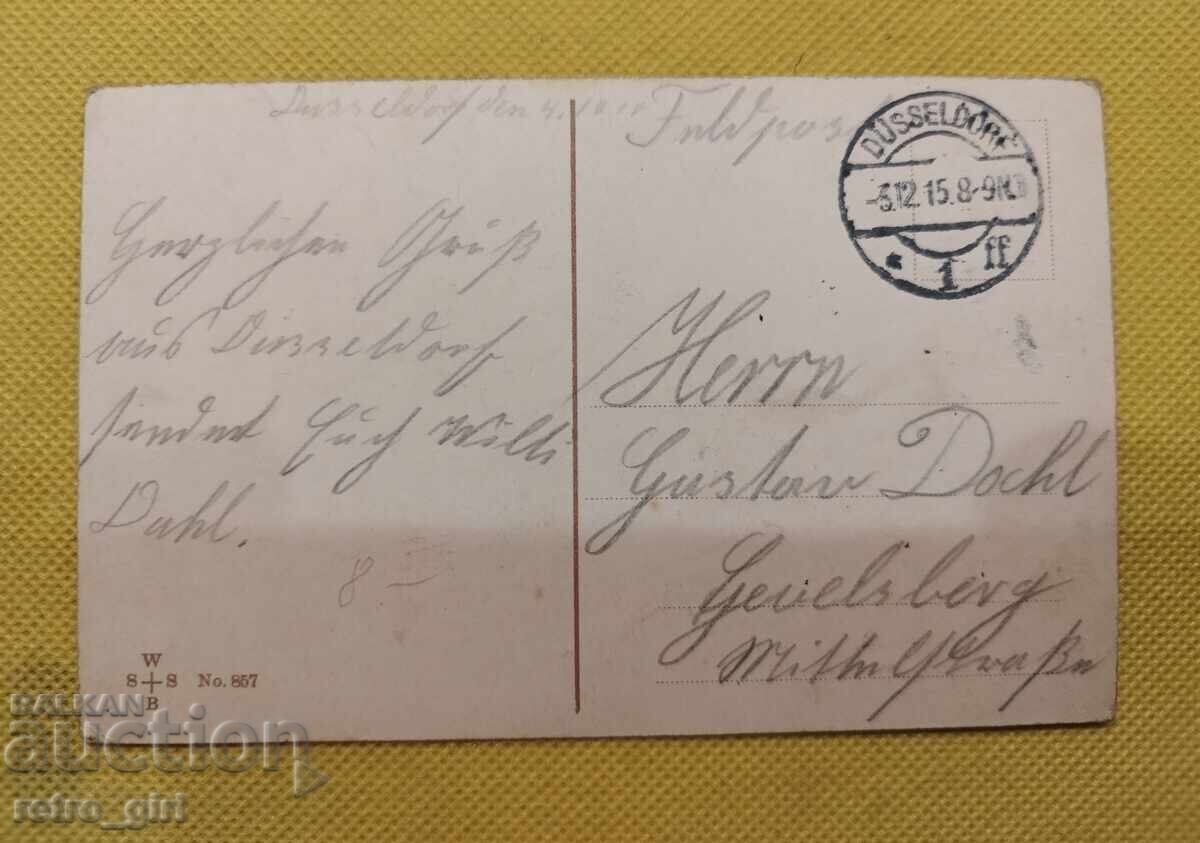 Düsseldorf den 4.
Feldpost
DÜSSELDORF
-5.12.15.8-9N.
* 1 ff
Herzlichen Gruß
aus Düsseldorf
sendet Euch Willi
Dahl.
8 —
Herrn
Gustav Dahl
Gevelsberg
Mittelstraße
W
S S No. 857
B
BALKAN
auction
retro_girl